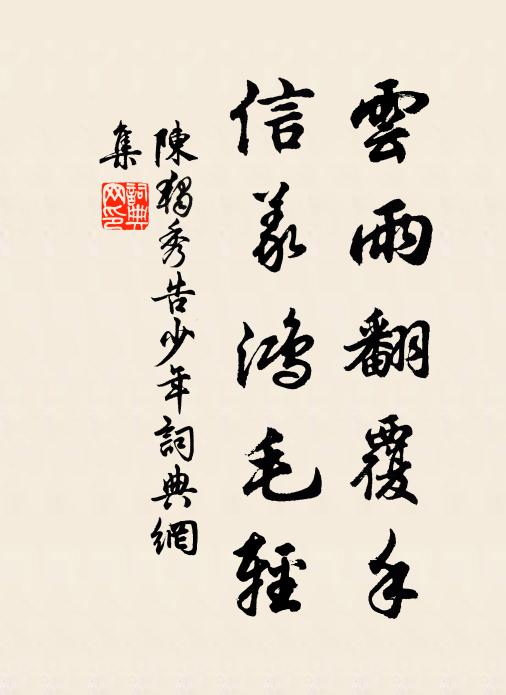 雲雨翻覆手
信義鴻毛輕
陳獨秀告少年詞典網
集
詞典網印